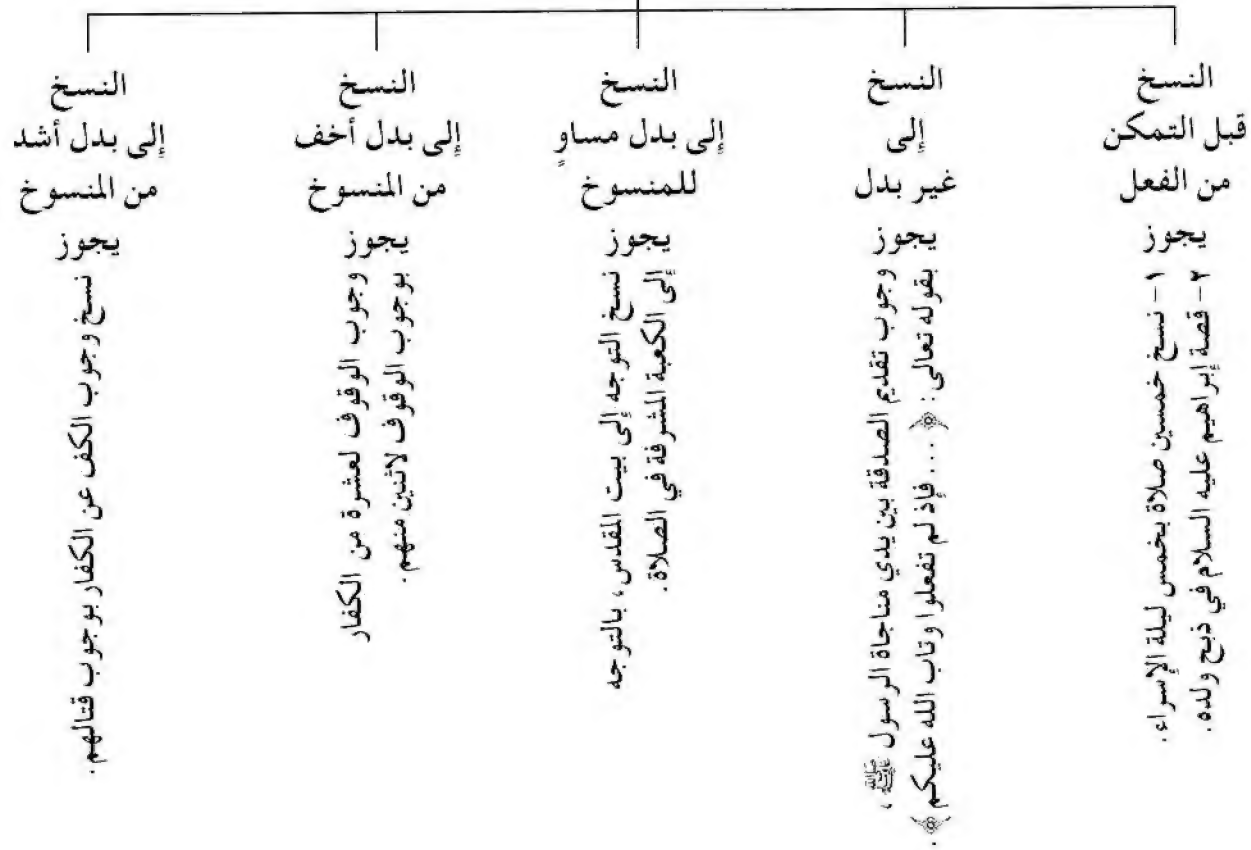 النسخ
قبل التمكن
من الفعل
يجوز
١ – نسخ خمسين صلاة بخمس ليلة الإسراء.
٢ – قصة إبراهيم عليه السلام في ذبح ولده.
النسخ
إلى
غير بدل
يجوز
وجوب تقديم الصدقة بين يدي مناجاة الرسول ﷺ،
بقوله تعالى: ﴿ ... فإذ لم تفعلوا وتاب الله عليكم ﴾.
النسخ
إلى بدل مساوٍ
للمنسوخ
يجوز
نسخ التوجه إلى بيت المقدس، بالتوجه
إلى الكعبة المشرفة في الصلاة.
النسخ
إلى بدل أخف
من المنسوخ
يجوز
وجوب الوقوف لعشرة من الكفار
بوجوب الوقوف لاثنين منهم.
النسخ
إلى بدل أشد
من المنسوخ
يجوز
نسخ وجوب الكف عن الكفار بوجوب قتالهم.